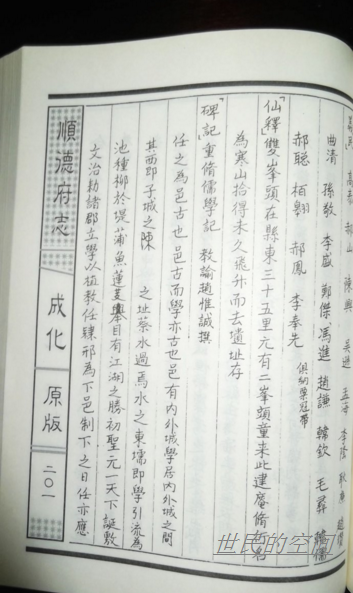 高泰 郝山 陳興 吳進 孟海 李隆 耿庸
曲清 孫敖 李盛 鄭傑 馮進 趙謙 韓欽 毛尋
郝聰 栢翱 郝鳳 李奉先 俱納粟冠帶
「仙釋」雙峯頭在縣東三十五里元有二峯頭童來此建庵脩行名
為寒山拾得未久飛升而去遺址存
「碑記」重脩儒學記 教諭趙惟誠撰
任之為邑古也邑古而學亦古也邑有內外城學居內外城之間
其西即子城之陳 之址蔡水過焉水之東壖即學引流為
池種柳於堤蒲魚蓮芰舉目有江湖之勝初聖元一天下誕敷
文治勅諸郡立學以植教任隸邢為下邑制下之日任亦應
順德府志
成化
原版
二〇一
世民的空间